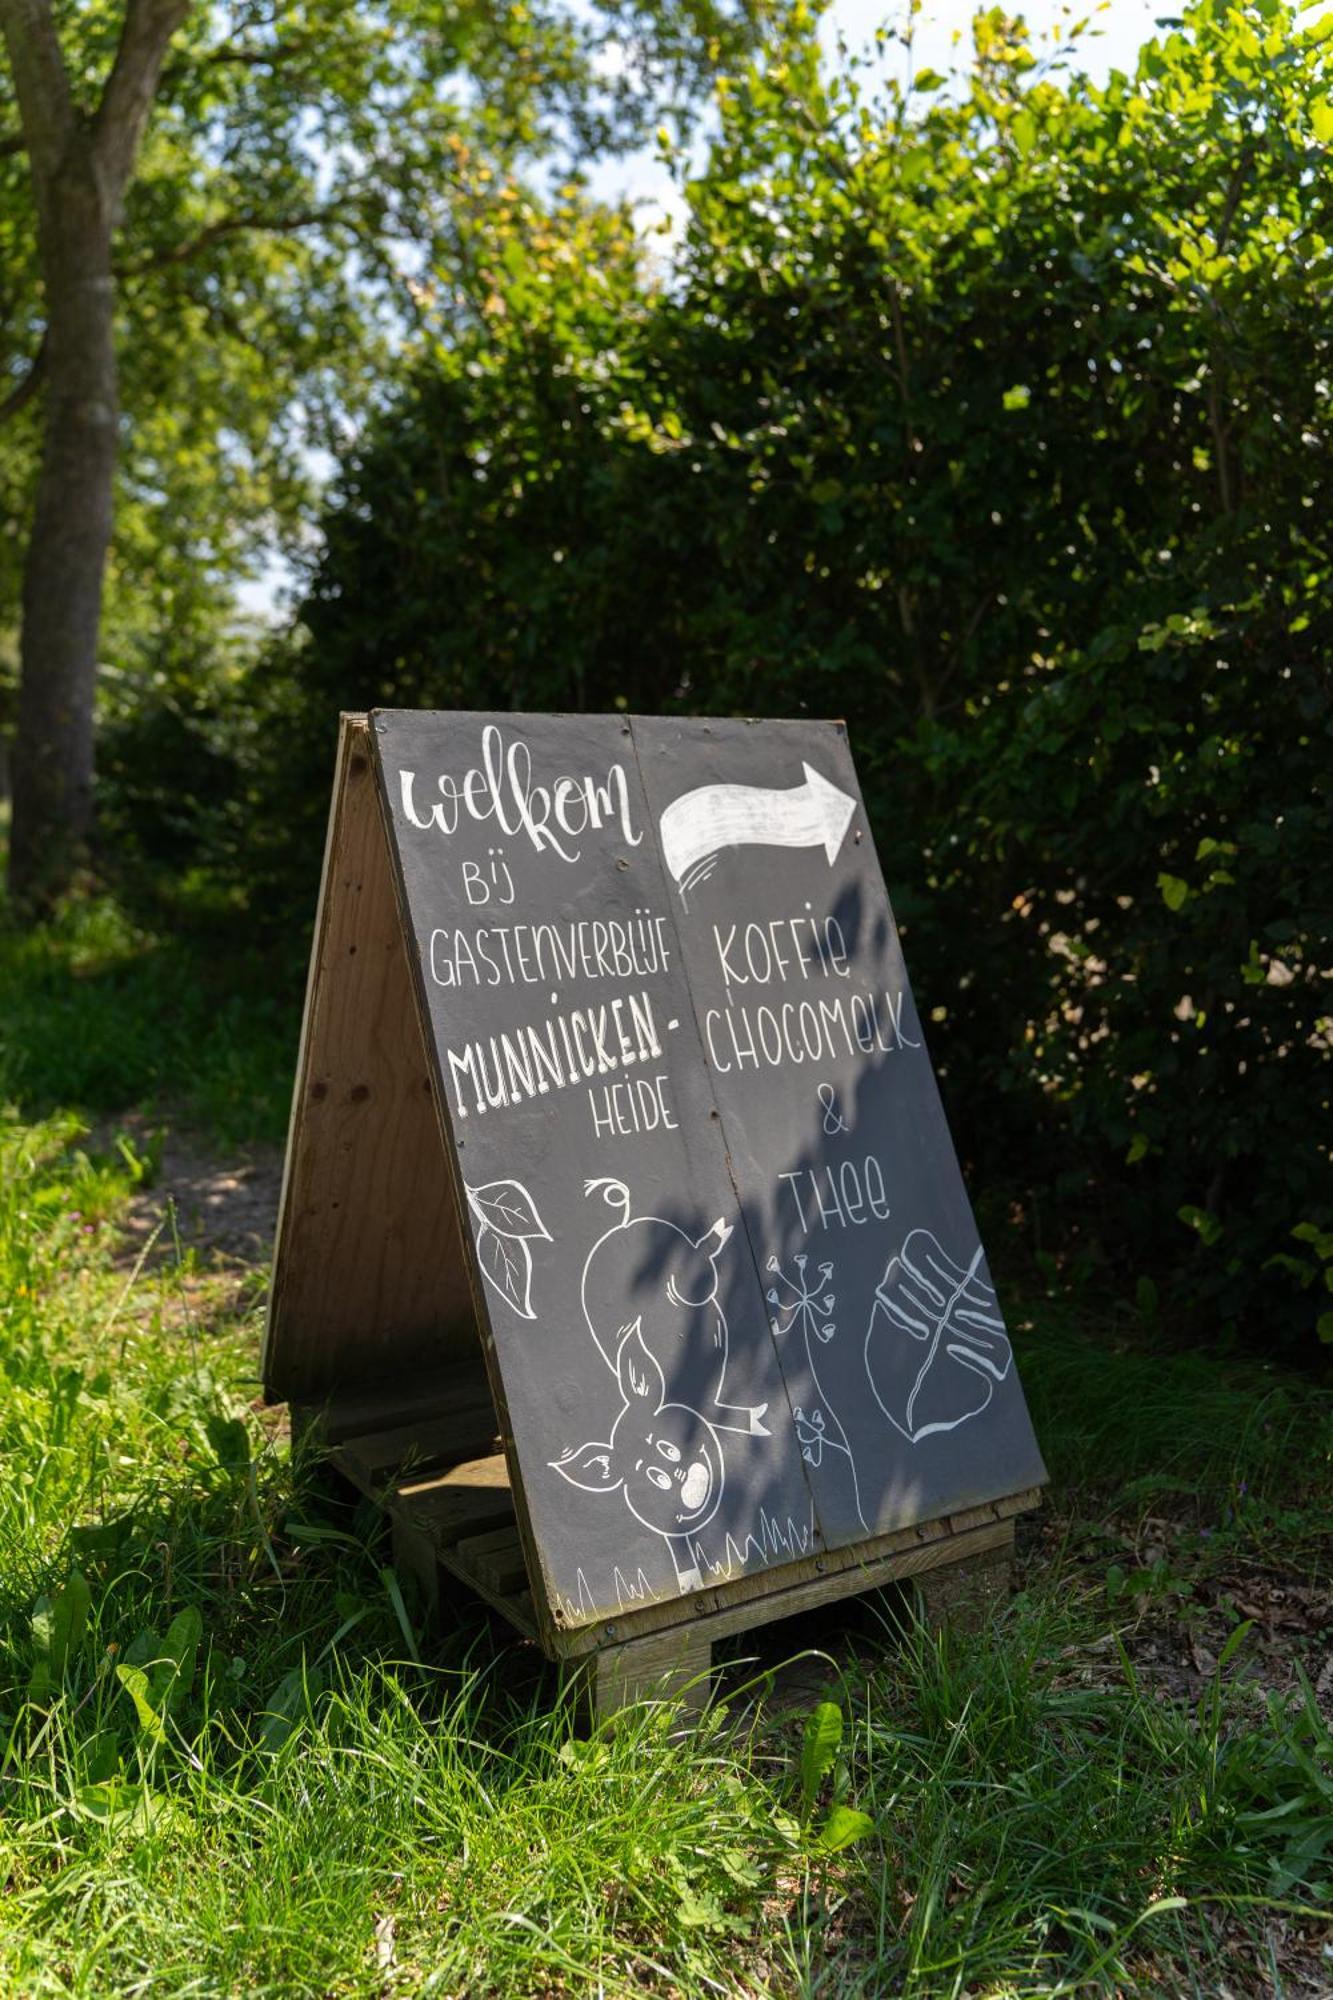 welkom
BIJ
GASTENVERBLIJF
MUNNICKEN-
HEIDE
KOFFIE
CHOCOMELK
&
THEE